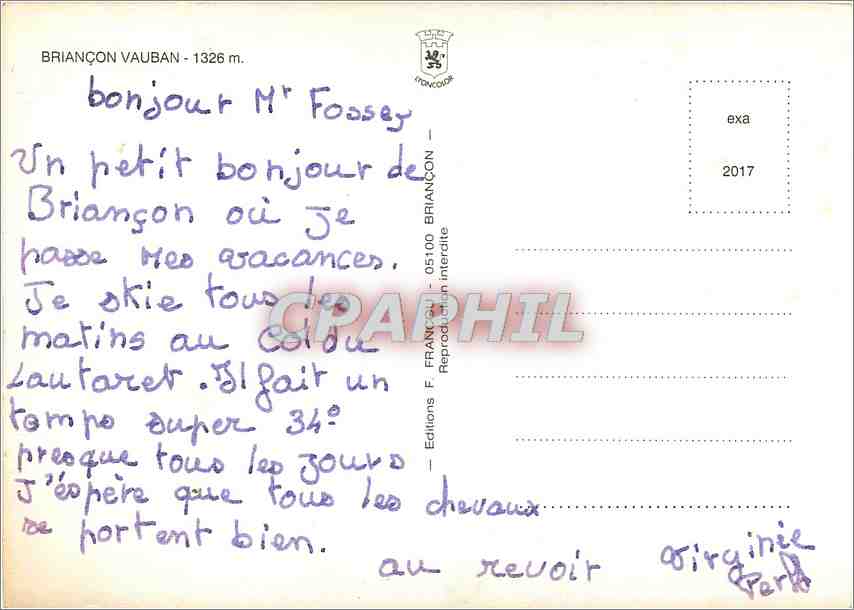 BRIANÇON VAUBAN - 1326 m.
LYONCOLOR
bonjour Mr Fossey
Un petit bonjour de
Briançon où je
passe mes vacances.
Je skie tous les
matins au Col du
Lautaret. Il fait un
temps super 34°
presque tous les jours
J'éspère que tous les chevaux
se portent bien.
au revoir Virginie
— Editions F. FRANCOU - 05100 BRIANÇON —
Reproduction interdite
exa
2017
CPAPHIL